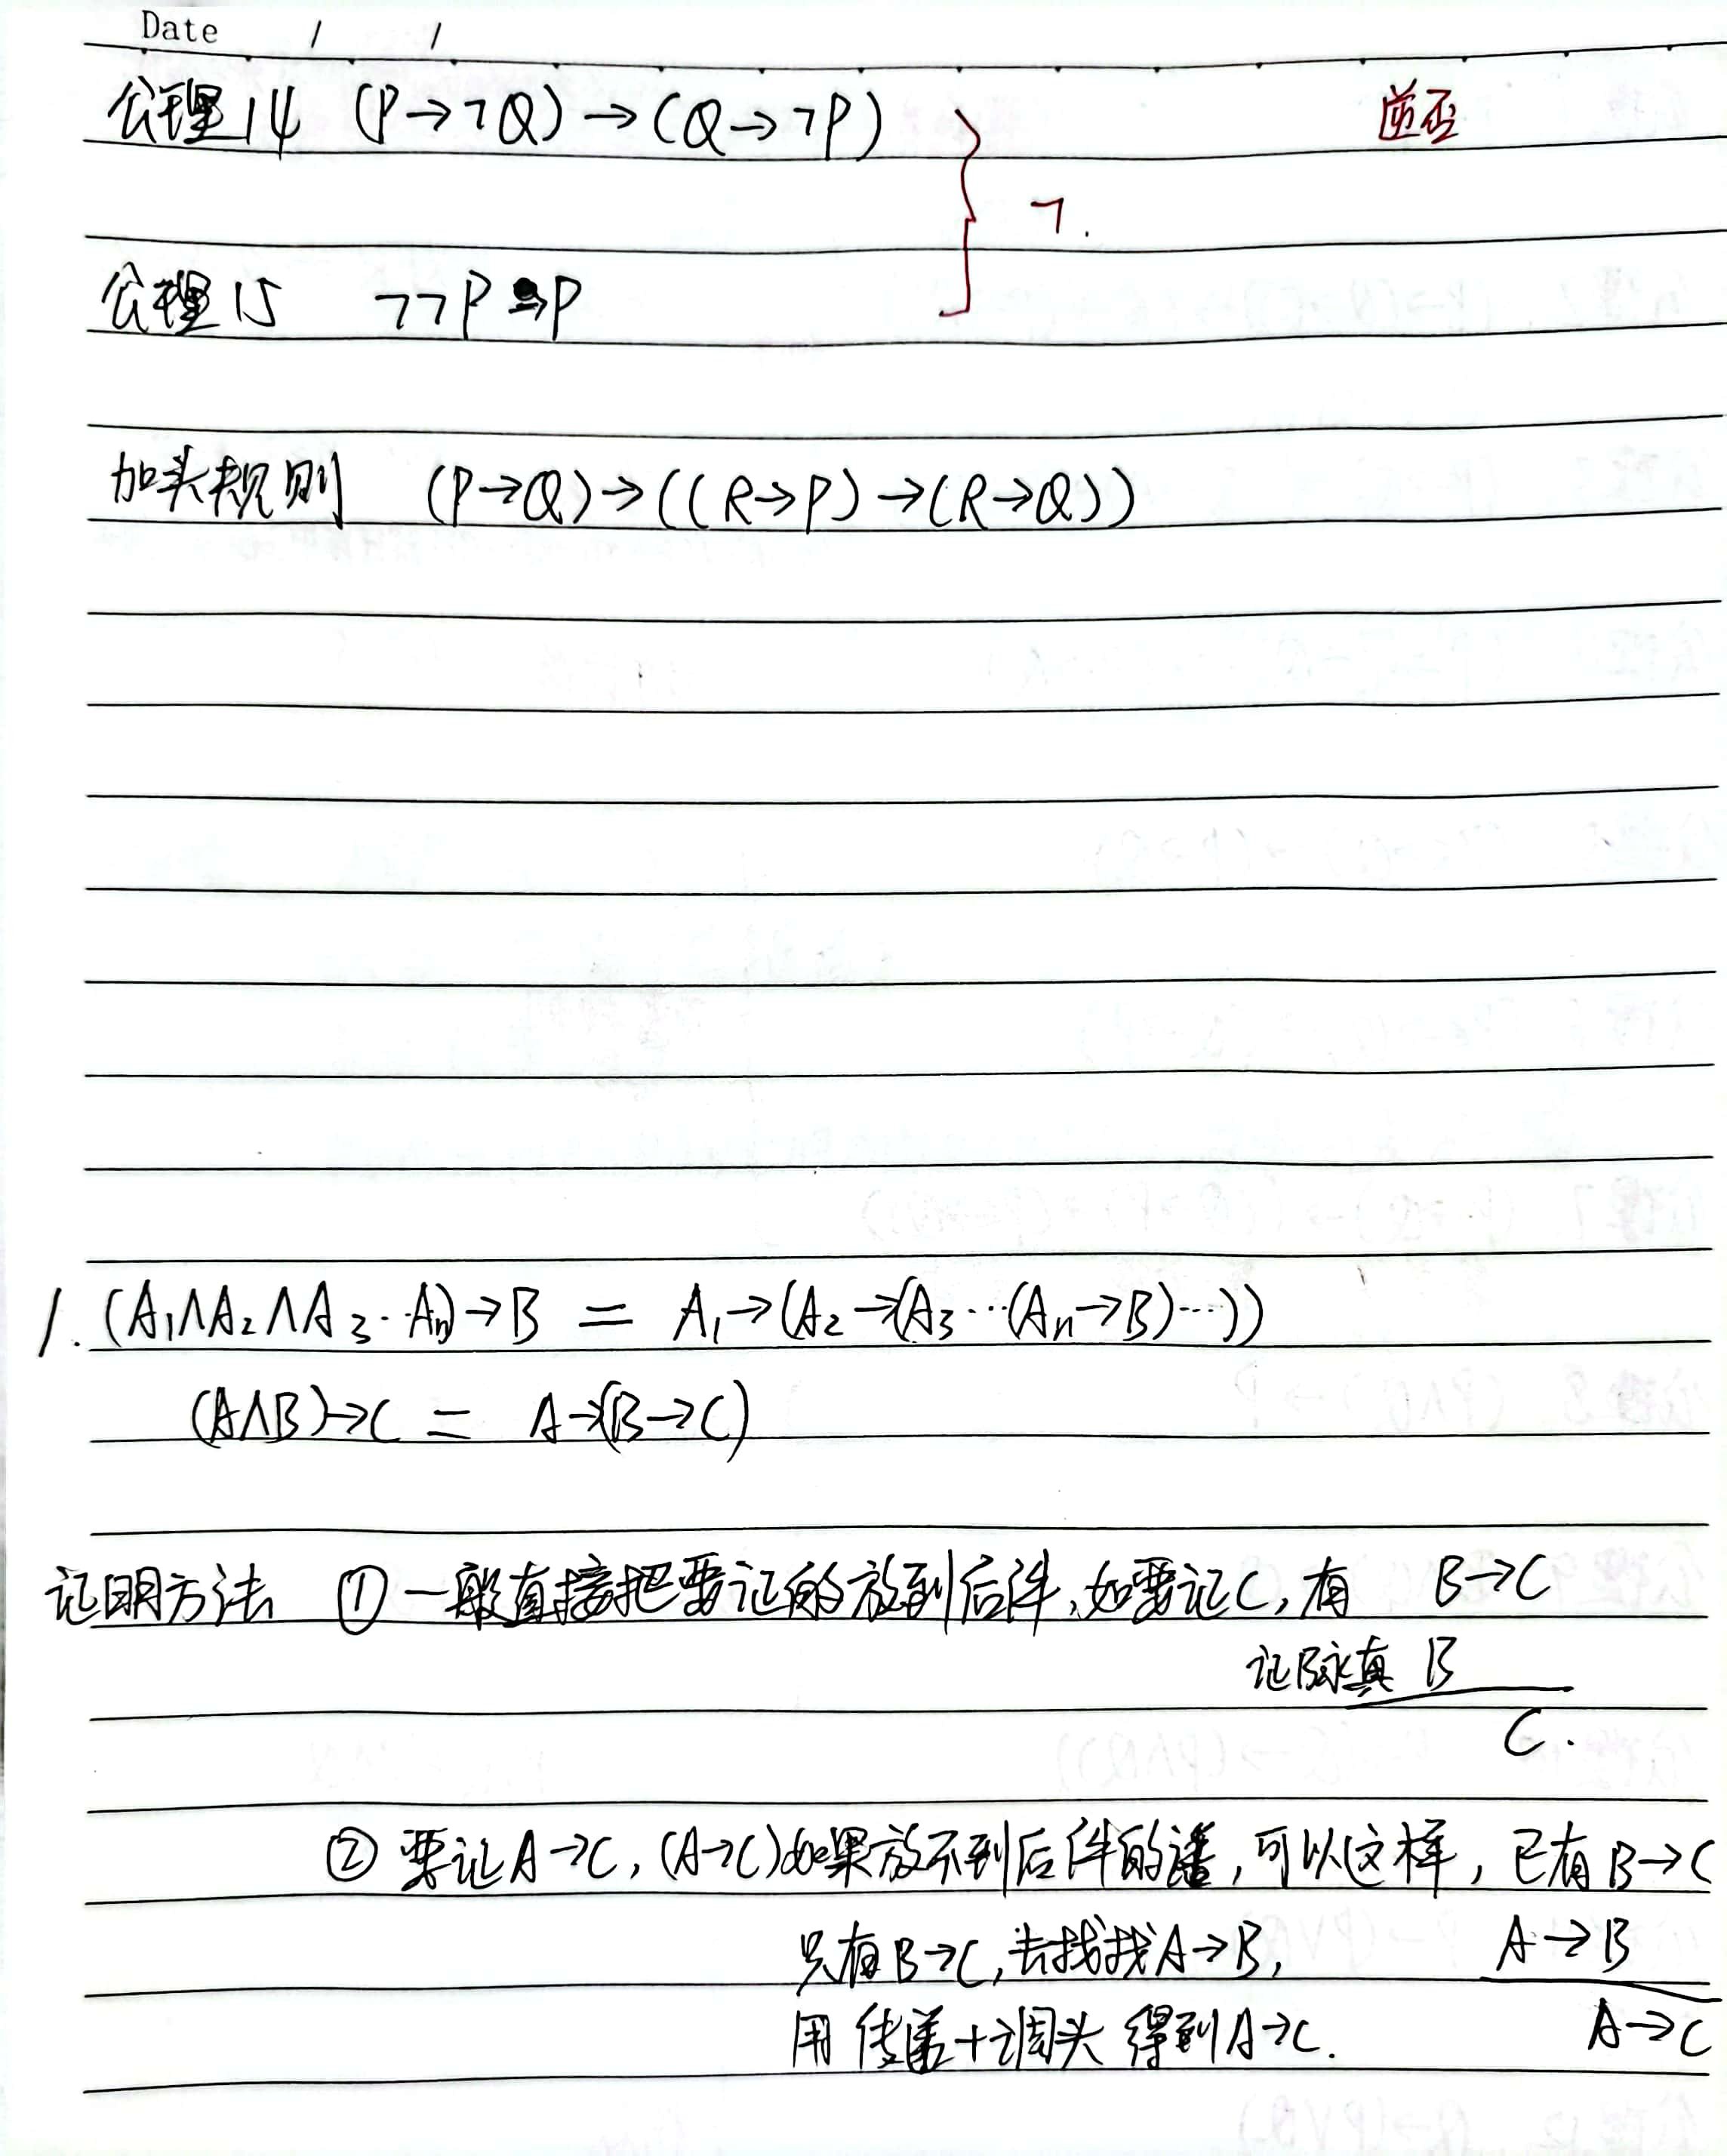 Date / /
公理14 (P→¬Q)→(Q→¬P) 逆否
¬.
公理15 ¬¬P→P
加头规则 (P→Q)→((R→P)→(R→Q))
1. (A₁∧A₂∧A₃··Aₙ)→B = A₁→(A₂→(A₃···(Aₙ→B)···))
(A∧B)→C = A→(B→C)
证明方法 ①一般直接把要证的放到后件,如要证C,有 B→C
证B永真 B
C.
②要证A→C,(A→C)如果放不到后件的话,可以这样,已有B→C
只有B→C,去找找A→B, A→B
用传递+调头 得到A→C. A→C